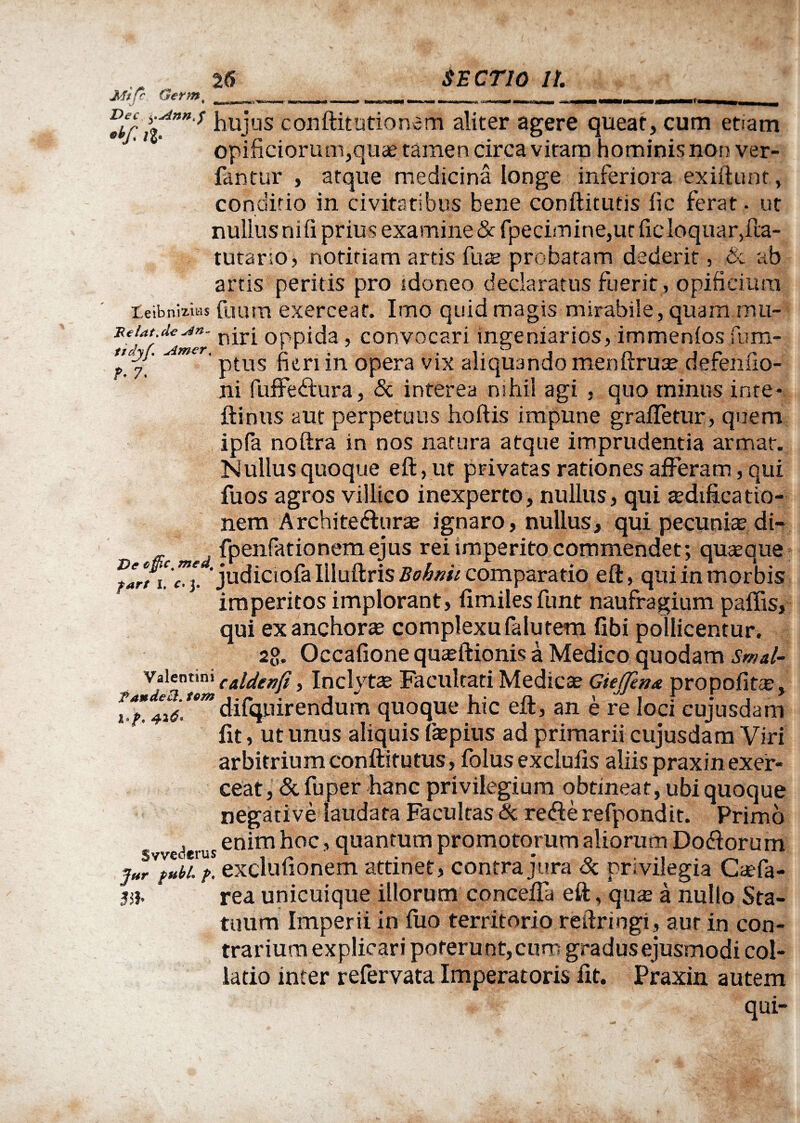 26 SECTIO II.
Misc Germ.
Dec 3. Ann. 5
obs. 18.
hujus conſtitutionem aliter agere queat, cum etiam
opificiorum, quæ tamen circa vitam hominis non ver-
ſantur , atque medicinâ longe inferiora exiſtunt,
conditio in civitatibus bene conſtitutis ſic ferat. ut
nullus niſi prius examine & ſpecimine, ut ſic loquar, ſta-
tutario, notitiam artis ſuæ probatam dederit, & ab
artis peritis pro idoneo declaratus fuerit, opificium
Leibnizius ſuum exerceat. Imo quid magis mirabile, quam mu-
Relat. de An- niri oppida, convocari ingeniarios, immenſos ſum-
tidyſ. Amer. ptus fieri in opera vix aliquando menſtruæ defenſio-
p. 7.
ni ſuffectura, & interea nihil agi , quo minus inte-
ſtinus aut perpetuus hoſtis impune graſſetur, quem
ipſa noſtra in nos natura atque imprudentia armat.
Nullus quoque eſt, ut privatas rationes afferam, qui
ſuos agros villico inexperto, nullus, qui ædificatio-
nem Architecturæ ignaro, nullus, qui pecuniæ di-
ſpenſationem ejus rei imperito commendet; quæque
De offic. med. judicioſa Illuſtris Bohnii comparatio eſt, qui in morbis
part 1. c. 3.
imperitos implorant, ſimiles ſunt naufragium paſſis,
qui ex anchoræ complexu ſalutem ſibi pollicentur.
28. Occaſione quæſtionis à Medico quodam Smal-
Valentini caldenſi, Inclytæ Facultati Medicæ Gieſſenæ propoſitæ,
Pandect. tom
1. p. 426. diſquirendum quoque hic eſt, an è re loci cujusdam
ſit, ut unus aliquis ſæpius ad primarii cujusdam Viri
arbitrium conſtitutus, ſolus excluſis aliis praxin exer-
ceat, & ſuper hanc privilegium obtineat, ubi quoque
negativè laudata Facultas & rectè reſpondit. Primò
enim hoc, quantum promotorum aliorum Doctorum
Svvederus
Jur publ. p. excluſionem attinet, contra jura & privilegia Cæſa-
33. rea unicuique illorum conceſſa eſt, quæ à nullo Sta-
tuum Imperii in ſuo territorio reſtringi, aut in con-
trarium explicari poterunt, cum gradus ejusmodi col-
latio inter reſervata Imperatoris ſit. Praxin autem
qui-